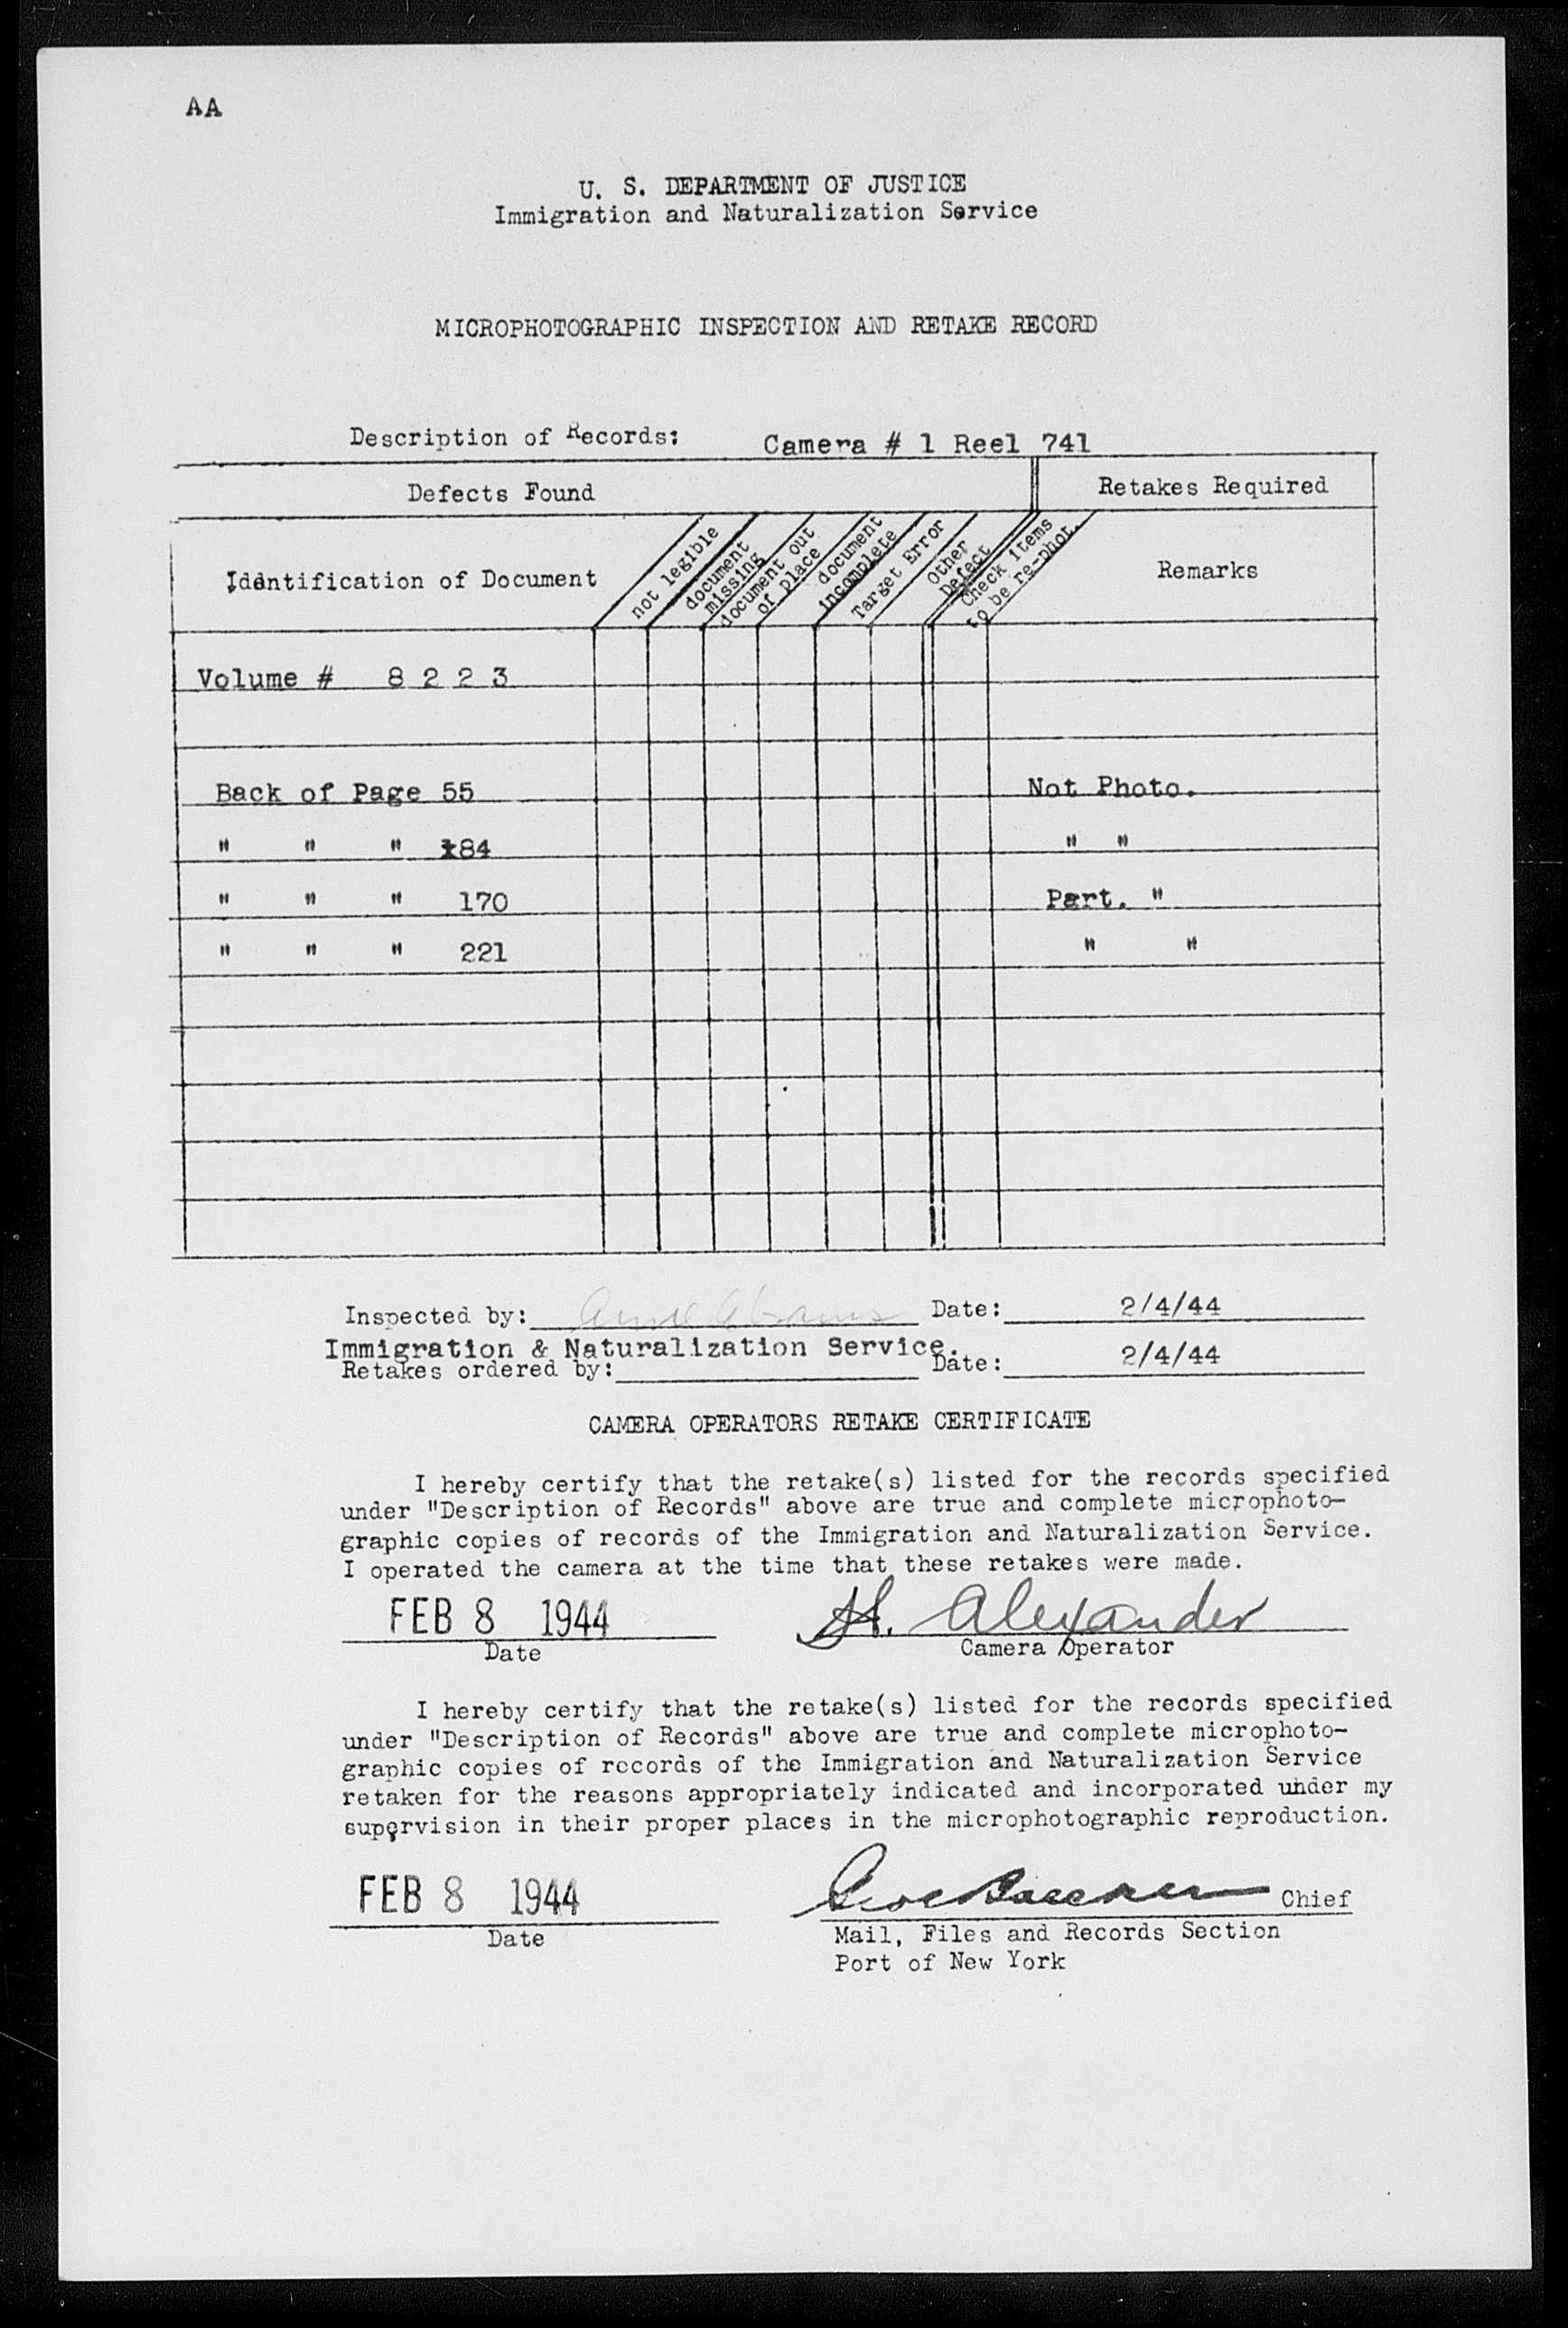 AA
U. S. DEPARTMENT OF JUSTICE
Immigration and Naturalization Service
MICROPHOTOGRAPHIC INSPECTION AND RETAKE RECORD
Description of Records: Camera # 1 Reel 741
Defects Found Retakes Required
Identification of Document
not legible
document missing
document out of place
document incomplete
Target Error
Other Defect
Check items to be re-phot.
Remarks
Volume # 8 2 2 3
Back of Page 55 Not Photo.
" " " 84 " "
" " " 170 Part. "
" " " 221 " "
Inspected by: Anne Abrams Date: 2/4/44
Immigration & Naturalization Service.
Retakes ordered by: Date: 2/4/44
CAMERA OPERATORS RETAKE CERTIFICATE
I hereby certify that the retake(s) listed for the records specified
under "Description of Records" above are true and complete microphoto-
graphic copies of records of the Immigration and Naturalization Service.
I operated the camera at the time that these retakes were made.
FEB 8 1944 H. Alexander
Date Camera Operator
I hereby certify that the retake(s) listed for the records specified
under "Description of Records" above are true and complete microphoto-
graphic copies of records of the Immigration and Naturalization Service
retaken for the reasons appropriately indicated and incorporated under my
supervision in their proper places in the microphotographic reproduction.
FEB 8 1944 Chief
Date Mail, Files and Records Section
Port of New York